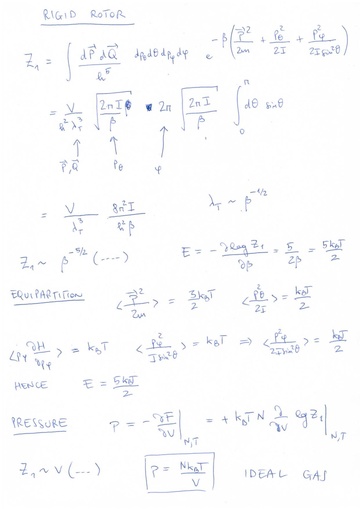 RIGID ROTOR
Z₁ = ∫ dP⃗ dQ⃗ / h⁵ dp_θ dθ dp_φ dφ e^{-β(P⃗²/2m + P_θ²/2I + P_φ²/2I sin²θ)}
= V/h²λ_T³ √(2πI/β) 2π √(2πI/β) ∫₀^π dθ sinθ
P⃗,Q⃗ P_θ φ
= V/λ_T³ 8π²I/h²β λ_T ~ β^{-1/2}
Z₁ ~ β^{-5/2} (....) E = -∂log Z₁/∂β = 5/2β = 5k_BT/2
EQUIPARTITION ⟨P⃗²/2m⟩ = 3k_BT/2 ⟨P_θ²/2I⟩ = k_BT/2
⟨P_φ ∂H/∂P_φ⟩ = k_BT ⟨P_φ²/I sin²θ⟩ = k_BT ⇒ ⟨P_φ²/2I sin²θ⟩ = k_BT/2
HENCE E = 5k_BT/2
PRESSURE P = -∂F/∂V|_{N,T} = + k_BT N ∂/∂V log Z₁|_{N,T}
Z₁ ~ V (...) P = Nk_BT/V IDEAL GAS